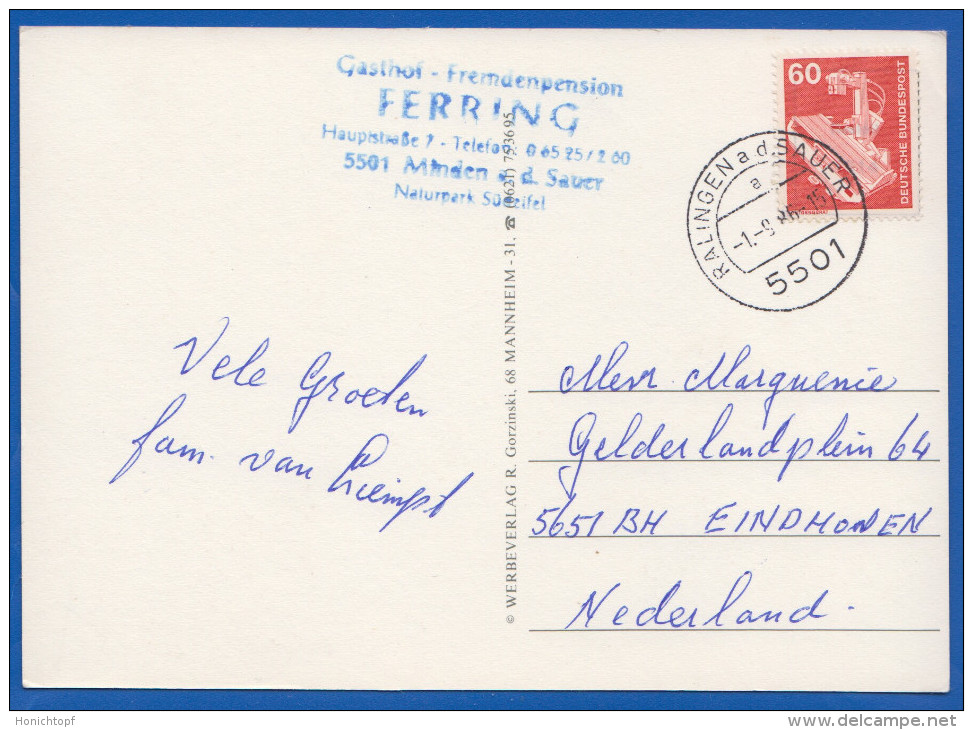 Gasthof - Fremdenpension
FERRING
Hauptstraße 7 - Telefon 06525/260
5501 Minden a. d. Sauer
Naturpark Südeifel
60
DEUTSCHE BUNDESPOST
RALINGEN a.d. SAUER
a
-1.-9.86-15
5501
Vele Groeten
fam. van Liempt
© WERBEVERLAG R. Gorzinski, 68 MANNHEIM - 31. ☎ (0621) 793695
Mevr. Marguerie
Gelderlandplein 64
5651 BH EINDHOVEN
Nederland.
Honichtopf
www.delcampe.net